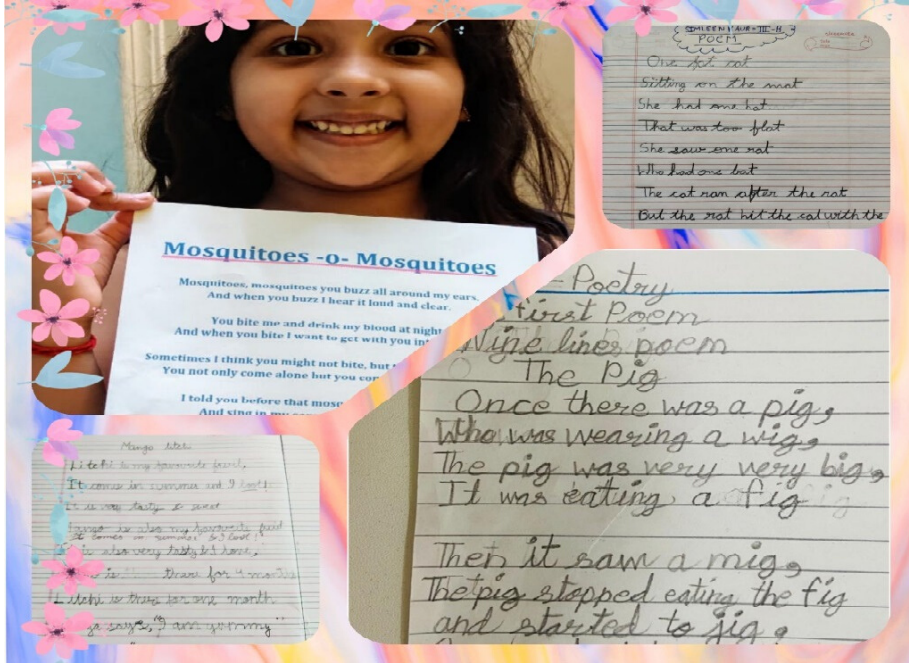 Mosquitoes -o- Mosquitoes
Mosquitoes, mosquitoes you buzz all around my ears.
And when you buzz I hear it loud and clear.
You bite me and drink my blood at night
And when you bite I want to get with you
Sometimes I think you might not bite, but
You not only come alone but you
I told you before that
And sing in my
III-H
POEM
One fat rat
Sitting on the mat
She had one hat
That was too flat
She saw one rat
Who had one bat
The cat ran after the rat
But the rat hit the cat with the
-Poetry
first Poem
Nine lines poem
The Pig
Once there was a pig,
Who was wearing a wig,
The pig was very very big,
It was eating a fig
Then it saw a mig,
The pig stopped eating the fig
and started to jig,
Mango litchi
Litchi is my favourite fruit,
It comes in summer and I
It is very tasty & sweet
is also my favourite fruit
It comes in summer &
is also very tasty &
is there for 4 months
Litchi is there for one month
says, "I am yummy"